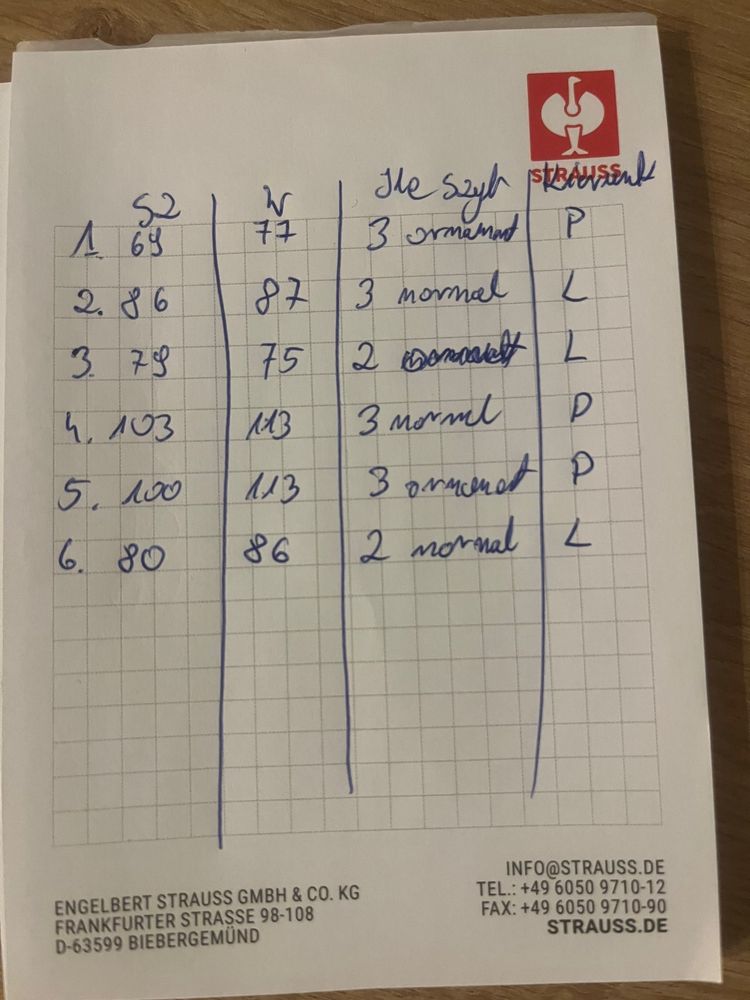 STRAUSS
SZ W Ile szyb Kierunk
1. 69 77 3 ornament P
2. 86 87 3 normal L
3. 79 75 2 L
4. 103 113 3 normal P
5. 100 113 3 ornament P
6. 80 86 2 normal L
ENGELBERT STRAUSS GMBH & CO. KG
FRANKFURTER STRASSE 98-108
D-63599 BIEBERGEMÜND
INFO@STRAUSS.DE
TEL.: +49 6050 9710-12
FAX: +49 6050 9710-90
STRAUSS.DE